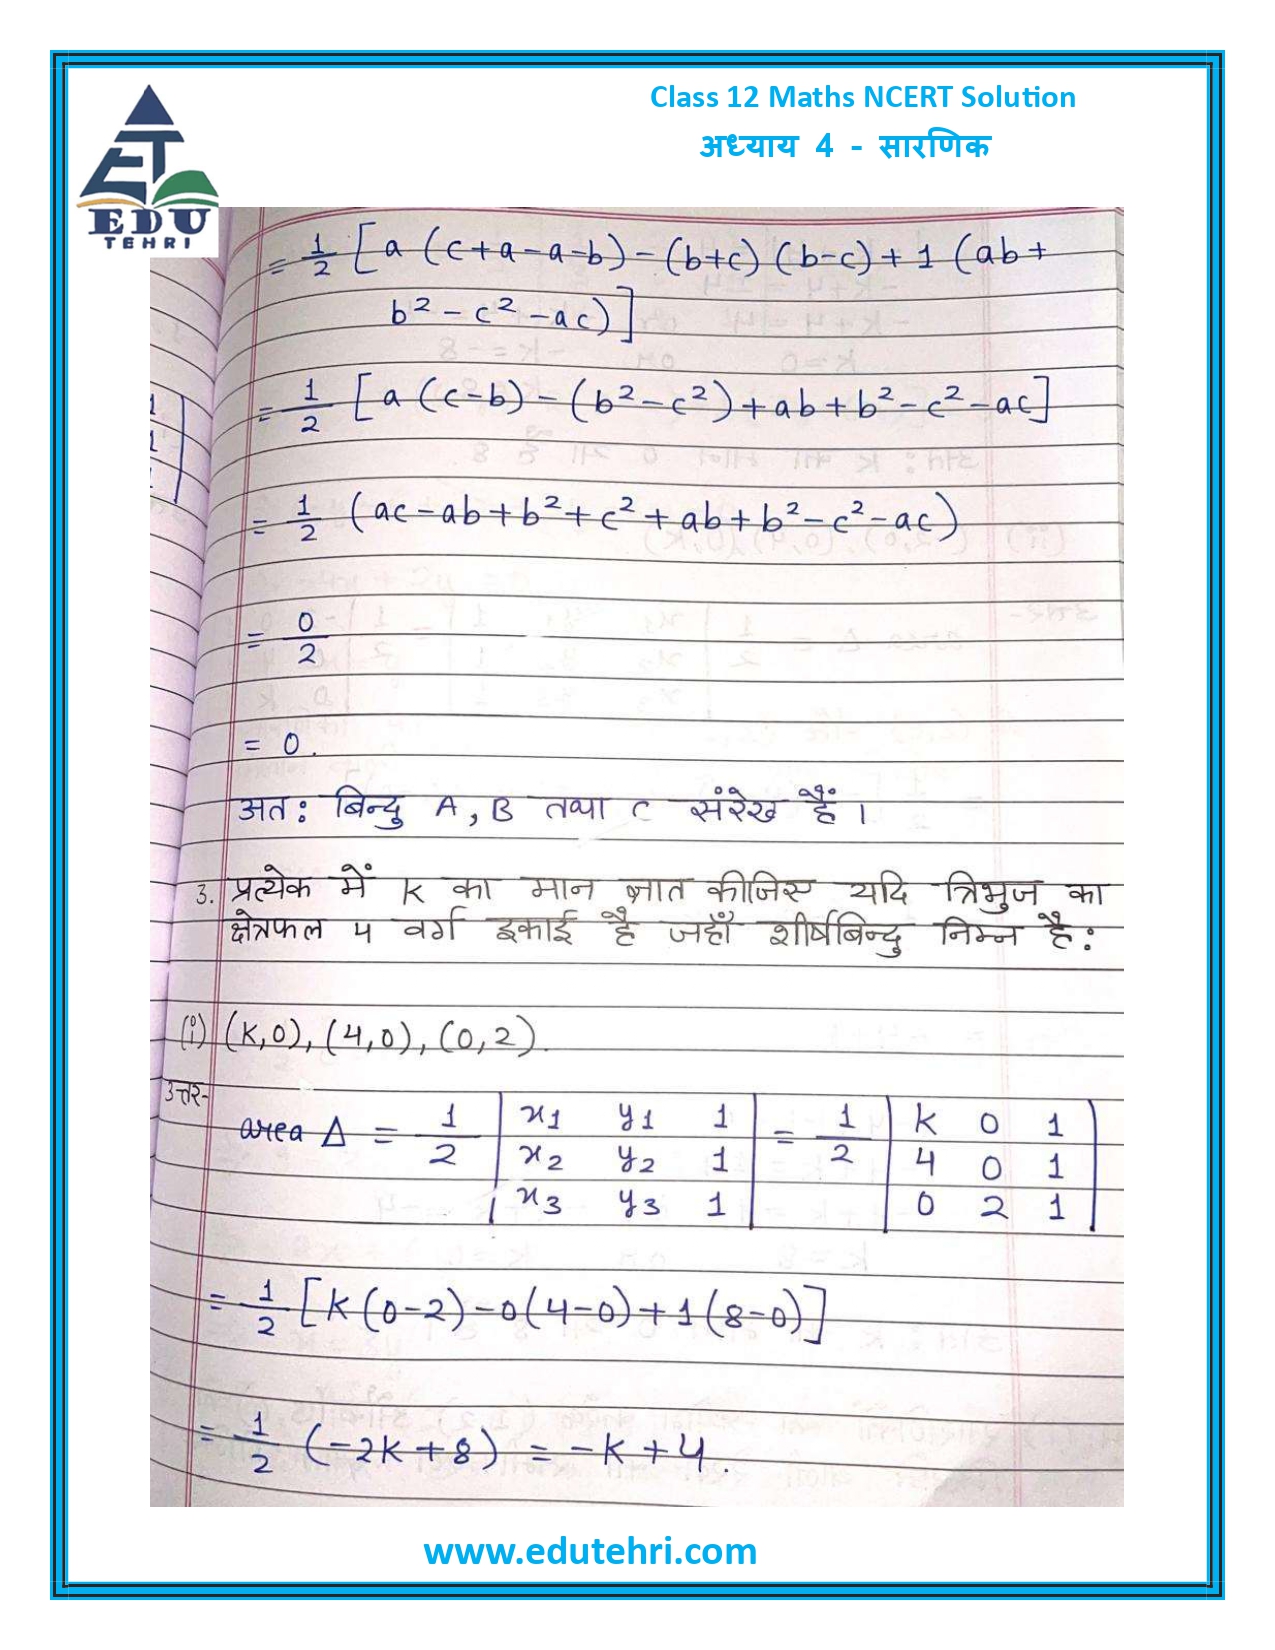 Class 12 Maths NCERT Solution
अध्याय 4 - सारणिक
EDU
TEHRI
= 1/2 [a (c+a-a-b) - (b+c) (b-c) + 1 (ab +
b² - c² - ac)]
= 1/2 [a (c-b) - (b² - c²) + ab + b² - c² - ac]
= 1/2 (ac - ab + b² + c² + ab + b² - c² - ac)
= 0/2
= 0.
अतः बिन्दु A, B तथा C संरेख हैं।
3. प्रत्येक में K का मान ज्ञात कीजिए यदि त्रिभुज का
क्षेत्रफल 4 वर्ग इकाई है जहाँ शीर्षबिन्दु निम्न है:
(i) (K,0), (4,0), (0,2).
उत्तर-
area Δ = 1/2 | x1 y1 1 | = 1/2 | K 0 1 |
| x2 y2 1 | | 4 0 1 |
| x3 y3 1 | | 0 2 1 |
= 1/2 [K(0-2) - 0(4-0) + 1(8-0)]
= 1/2 (-2K + 8) = -K + 4.
www.edutehri.com